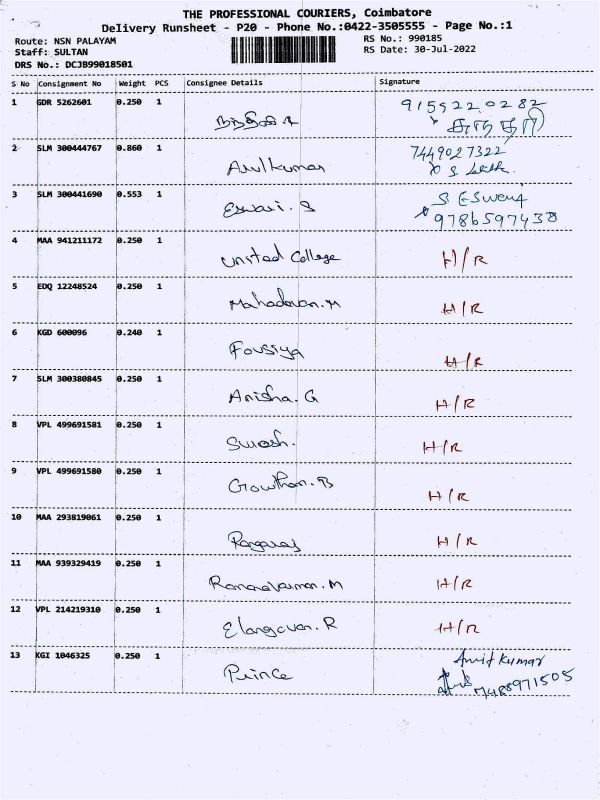 THE PROFESSIONAL COURIERS, Coimbatore
Delivery Runsheet - P20 - Phone No.:0422-3505555 - Page No.:1
Route: NSN PALAYAM RS No.: 990185
Staff: SULTAN RS Date: 30-Jul-2022
DRS No.: DCJB99018501
S No Consignment No Weight PCS Consignee Details Signature
1 GDR 5262601 0.250 1 915522 0282
2 SLM 300444767 0.860 1 Arulkumar 7449027322
3 SLM 300441690 0.553 1 Eswari. S S Eswari
9786597438
4 MAA 941211172 0.250 1 United College H/R
5 EDQ 12248524 0.250 1 Mahadevan.M H/R
6 KGD 600096 0.240 1 Fousiya H/R
7 SLM 300380845 0.250 1 Anisha. G H/R
8 VPL 499691581 0.250 1 H/R
9 VPL 499691580 0.250 1 Gowthan. B H/R
10 MAA 293819061 0.250 1 Rangaraj H/R
11 MAA 939329419 0.250 1 H/R
12 VPL 214219310 0.250 1 Elangovan. R H/R
13 KGI 1046325 0.250 1 Prince Amit Kumar
7488971505